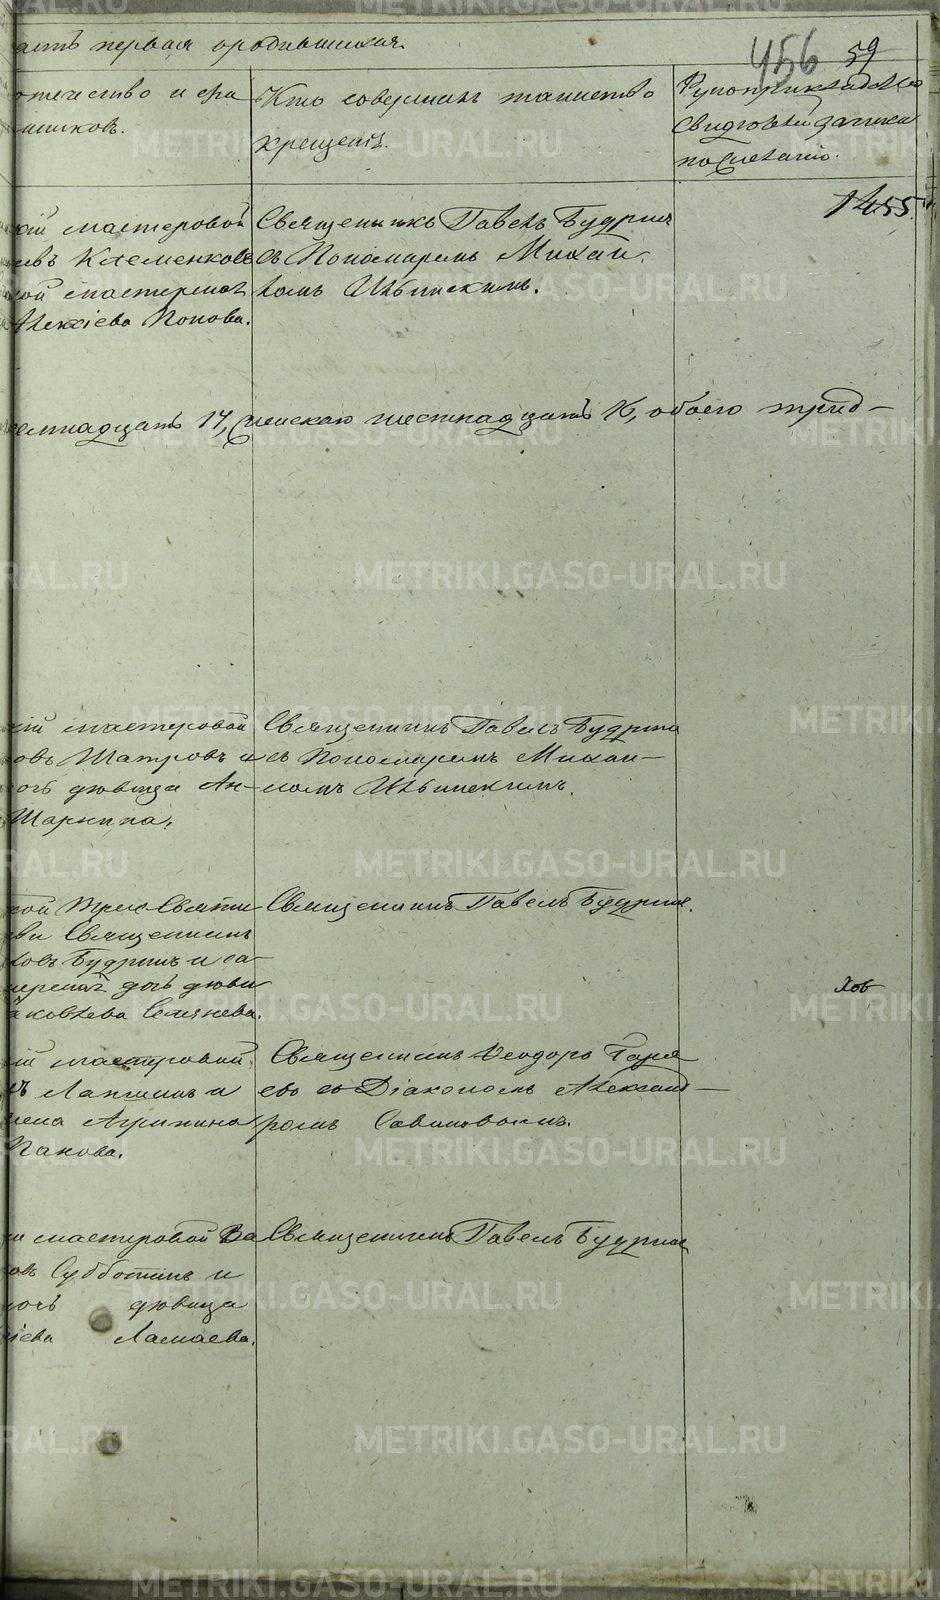 асть первая о родившихся.
456 59
отечество и фа
Кто совершилъ таинство
крещенія.
свидѣтелей записи
по желанію.
1455.
кій мастеровой
евъ Клеменковъ
ной мастерской
Алексіева Попова.
Священникъ Павелъ Будринъ
съ Пономаремъ Михаи
ломъ Ильинскимъ.
семнадцать 17, женскаго шестнадцать 16, обоего трид-
кій мастеровой
овъ Шатровъ и
дочь дѣвица Ан-
Шаркина.
Священникъ Павелъ Будринъ
съ Пономаремъ Михаи-
ломъ Ильинскимъ.
кой Трехсвяти
ви Священникъ
ковъ Будринъ и са-
дочь дѣви
аковлева Селянева.
Священникъ Павелъ Будринъ.
ій мастеровой
ъ Лапшинъ и
Агрипина
Панова.
Священникъ Ѳеодоръ Горя
евъ съ Діакономъ Александ-
ромъ Савиновымъ.
й мастеровой Ва
овъ Субботинъ и
дочь дѣвица
іева Ламаева.
Священникъ Павелъ Будринъ
METRIKI.GASO-URAL.RU